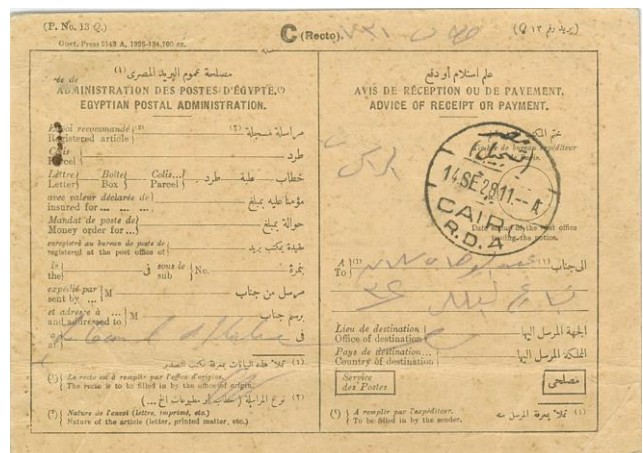 (P. No. 13 Q.)
Govt. Press 2149 A, 1926-134,700 ex.
C (Recto).
(بريد رقم ١٣ Q)
مصلحة عموم البريد المصرى (١)
ADMINISTRATION DES POSTES D'ÉGYPTE.(1)
EGYPTIAN POSTAL ADMINISTRATION.
Envoi recommandé (2)
Registered article
مراسلة مسجلة (٢)
Colis
Parcel
طرد
Lettre Boîte Colis...
Letter Box Parcel
خطاب علبة طرد
avec valeur déclarée de
insured for ... ... ...
مؤمنا عليه بمبلغ
Mandat de poste de
Money order for ...
حوالة بمبلغ
enregistré au bureau de poste de
registered at the post office of
مقيدة بمكتب بريد
le
the
في
sous le
sub
No.
بنمرة
expédié par
sent by ...
M
مرسل من جناب
et adressé à ...
and addressed to
M
برسم جناب
في
(١) تملأ هذه البيانات بمعرفة مكتب المصدر
(1) Le recto est à remplir par l'office d'origine.
The recto is to be filled in by the office of origin.
(٢) نوع المراسلة (خطاب أو مطبوعات الخ ...)
(2) Nature de l'envoi (lettre, imprimé, etc.)
Nature of the article (letter, printed matter, etc.)
علم استلام أو دفع
AVIS DE RÉCEPTION OU DE PAYEMENT.
ADVICE OF RECEIPT OR PAYMENT.
ختم المكتب
Timbre du bureau expéditeur
14 SE 28 11 - A
CAIRO
R.D. 4
Date stamp of the post office
sending the notice.
A (1)
To
الى جناب (١)
Lieu de destination
Office of destination
الجهة المرسل اليها
Pays de destination ...
Country of destination
المملكة المرسل اليها
Service
des Postes
مصلحى
(1) A remplir par l'expéditeur.
To be filled in by the sender.
(١) تملأ بمعرفة المرسل منه